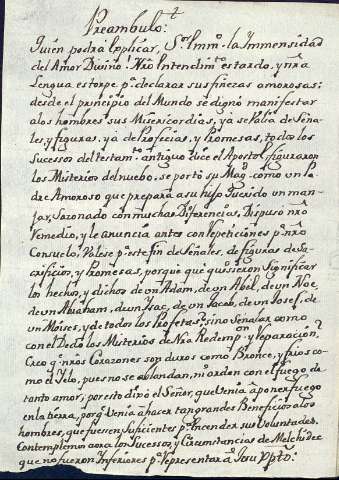 Preambulo.
Quien podrà Explicar, Sor Emmo. la Immensidad
del Amor Divino! Nro Entendimto. es tardo, y nrã
Lengua es torpe pa. declarar sus finezas amorosas:
desde el principio del Mundo se dignò manifestar
a los hombres sus Misericordias, ya se Valia de Seña-
les y figuras, ya de Proficias, y Promesas, todos los
Sucessos del testamto. antiguo dice el Apostol, figuraron
los Misterios del nuebo, se portò su Magd. como un Pa
dre Amoroso que prepara a su hijo querido un man-
jar, sazonado con muchas Diferencias, Dispuso nrõ
remedio, y le anuncia antes con repeticiones pa. nrõ
Consuelo, Valese pa. este fin de Señales, de figuras de Sa-
crificios, y Promesas, porque què quisieron Significar
los hechos, y dichos de un Adam, de un Abel, de un Noe,
de un Abraham, de un Ysac, de un Jacob, de un Josef, de
un Moises, y de todos los Profetas, sino Señalar como
con el Dedo los Misterios de Nrã Redempn. y reparacion?
Creo q. nrõs Corazones son duros como Bronce, y frios co-
mo el Yelo, pues no se ablandan, ni arden con el fuego de
tanto amor; por esto dixo el Señor, que Venia à poner fuego
en la tierra, porq. Venia a hacer tan grandes Beneficios a los
hombres, que fuesen suficientes pa. Encender sus Voluntades.
Contemplemos aora los Sucessos, y Circunstancias de Melchisec
que no fueron Inferiores pa. representar à Jesu Xpto.